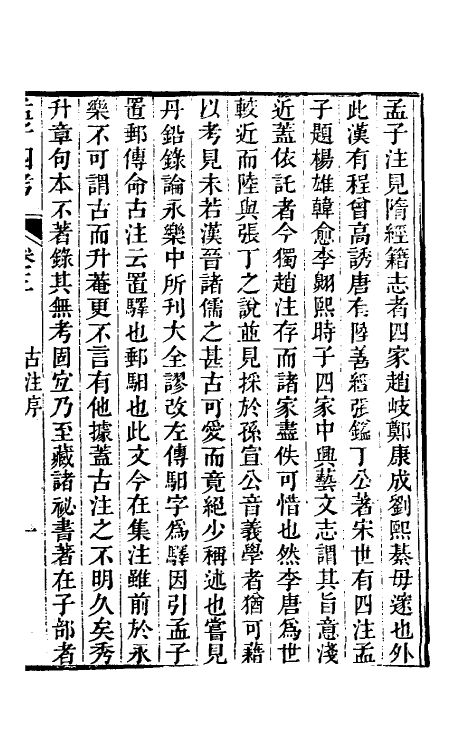 孟子注見隋經籍志者四家趙岐鄭康成劉熙綦毋邃也外
此漢有程曾高誘唐有陸善經張鎰丁公著宋世有四注孟
子題楊雄韓愈李翺熙時子四家中興藝文志謂其旨意淺
近蓋依託者今獨趙注存而諸家盡佚可惜也然李唐爲世
較近而陸與張丁之說並見採於孫宣公音義學者猶可藉
以考見未若漢晉諸儒之甚古可愛而竟絕少稱述也嘗見
丹鉛錄論永樂中所刊大全謬改左傳馹字爲驛因引孟子
置郵傳命古注云置驛也郵馹也此文今在集注雖前於永
樂不可謂古而升菴更不言有他據蓋古注之不明久矣秀
升章句本不著錄其無考固宜乃至藏諸祕書著在子部者
孟子四考
卷三
古注序
一